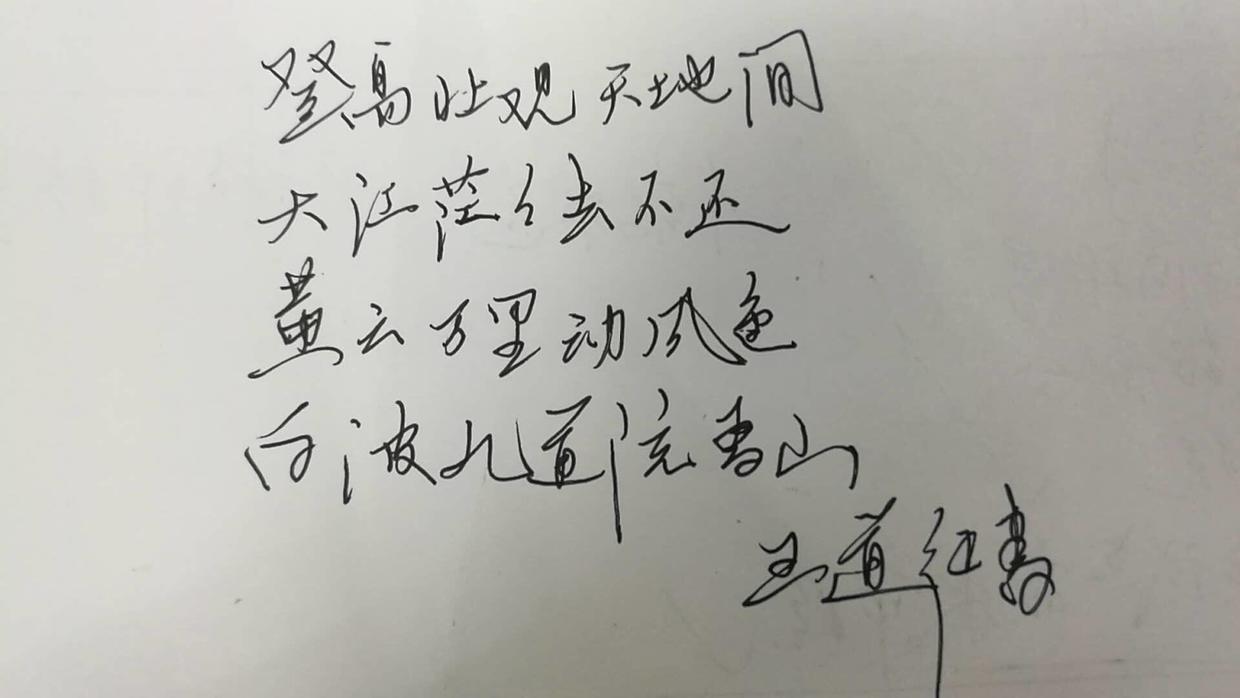 登高壮观天地间
大江茫々去不还
黄云万里动风色
白波九道流雪山
王道红書